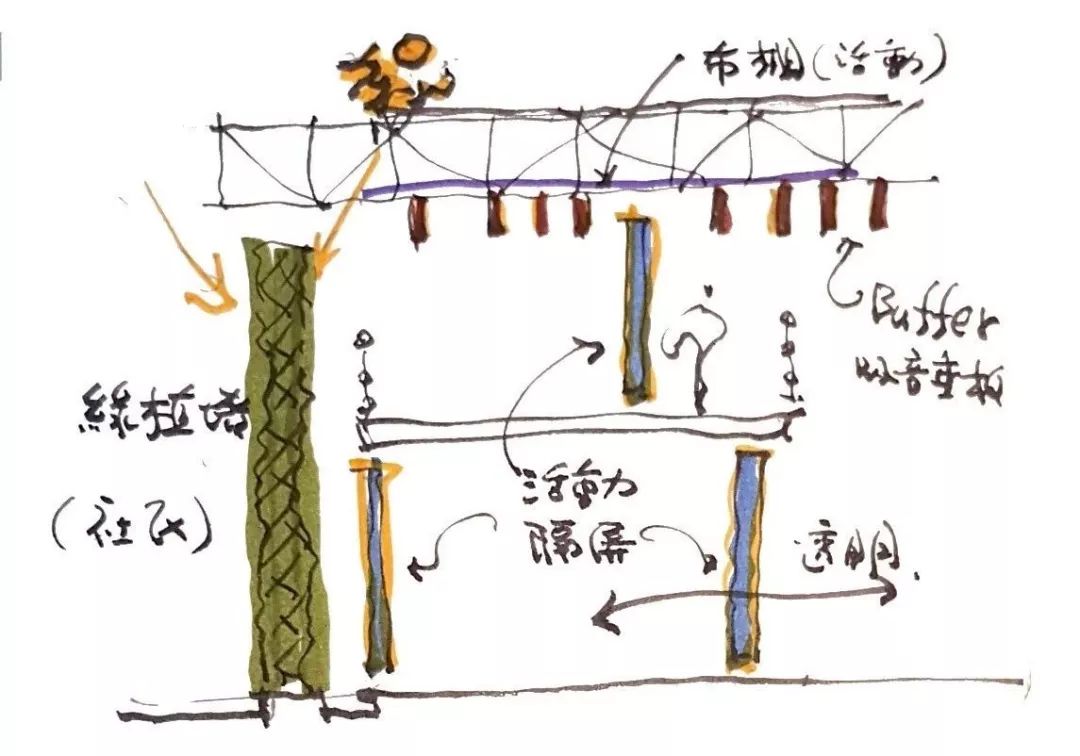 布棚(活動)
Buffer
吸音垂板
綠拉塔
(社区)
活動
隔屏
透明